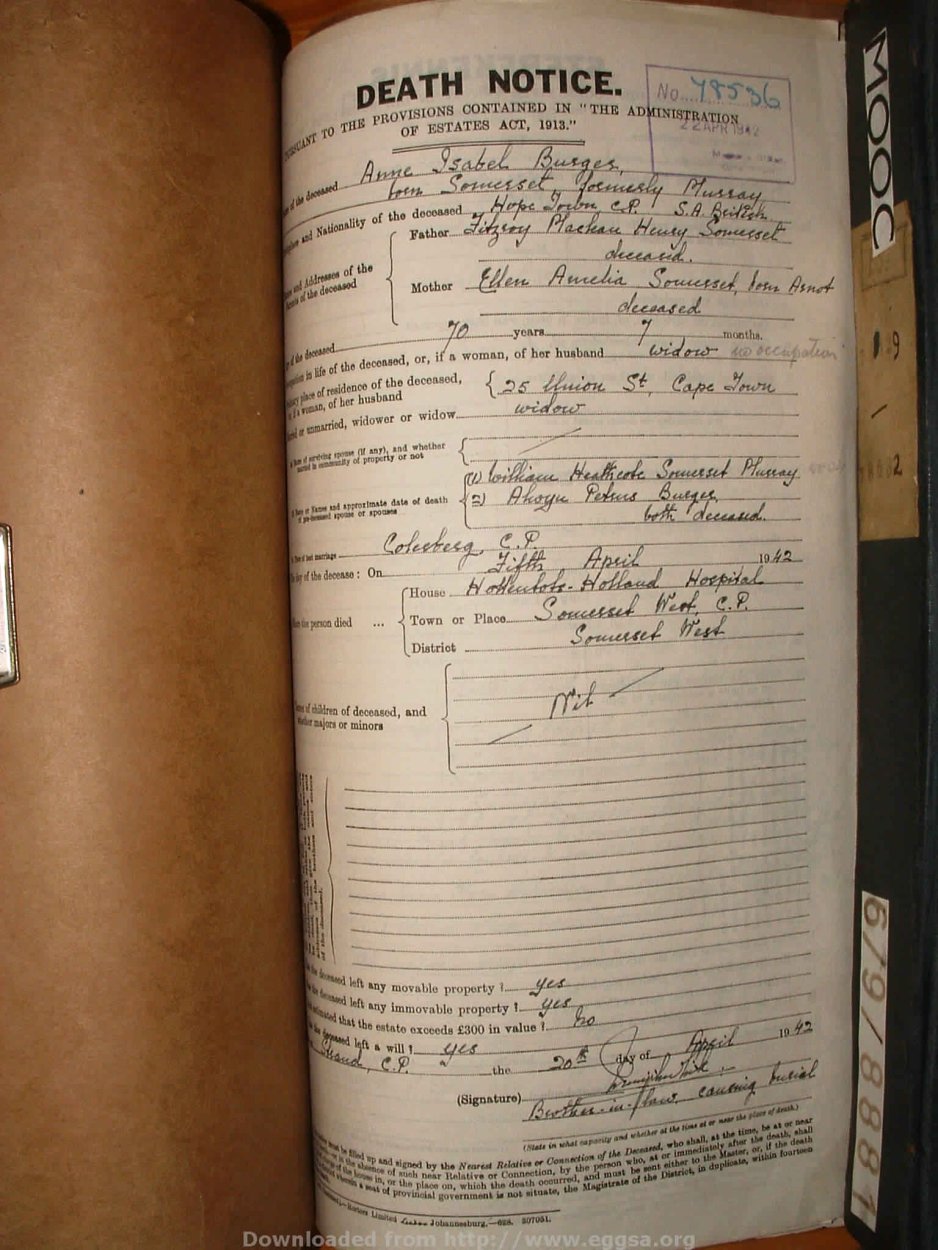 DEATH NOTICE.
No. 78536
22 APR 1942
TO THE PROVISIONS CONTAINED IN "THE ADMINISTRATION
OF ESTATES ACT, 1913."
of the deceased Anne Isabel Burger,
born Somerset, formerly Murray
and Nationality of the deceased Hope Town C.P. S.A. British
Father Fitzroy Henry Somerset
deceased.
and Addresses of the
of the deceased
Mother Ellen Amelia Somerset, born Arnot
deceased
of the deceased 70 years 7 months.
in life of the deceased, or, if a woman, of her husband widow no occupation
place of residence of the deceased,
if a woman, of her husband
25 Union St, Cape Town
or unmarried, widower or widow widow
of surviving spouse (if any), and whether
married in community of property or not
(1) William Heathcote Somerset Murray
or Names and approximate date of death
of pre-deceased spouse or spouses
2) Petrus Burger
both deceased.
of last marriage Colesberg, C.P.
of the decease: On Fifth April 1942
House Hottentots-Holland Hospital
the person died ... Town or Place Somerset West, C.P.
District Somerset West
of children of deceased, and
whether majors or minors
Nil
of the deceased.
deceased left any movable property? yes
deceased left any immovable property? yes
estimated that the estate exceeds £300 in value? no
the deceased left a will? yes
C.P. the 20th day of April 1942
(Signature)
Brother-in-law causing burial
(State in what capacity and whether at the time at or near the place of death.)
must be filled up and signed by the Nearest Relative or Connection of the Deceased, who shall, at the time, be at or near
in the absence of such near Relative or Connection, by the person who, at or immediately after the death, shall
of the house in, or the place on, which the death occurred, and must be sent either to the Master, or, if the death
wherein a seat of provincial government is not situate, the Magistrate of the District, in duplicate, within fourteen
Hortors Limited Johannesburg.—628. 507051.
MOOC
6/9/8881
Downloaded from http://www.eggsa.org